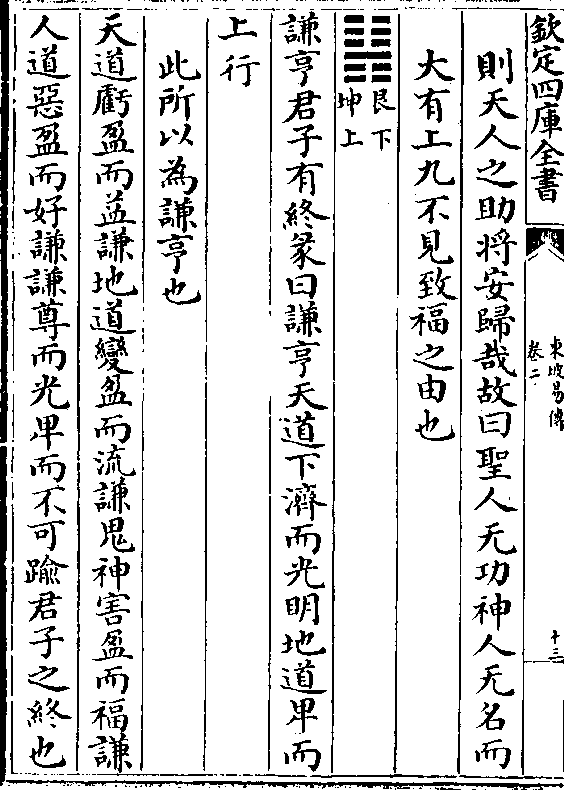 欽定四庫全書
東坡易傳
卷二
十三
則天人之助將安歸哉故曰聖人无功神人无名而
大有上九不見致福之由也
䷎艮下
坤上
謙亨君子有終彖曰謙亨天道下濟而光明地道卑而
上行
此所以為謙亨也
天道虧盈而益謙地道變盈而流謙鬼神害盈而福謙
人道惡盈而好謙謙尊而光卑而不可踰君子之終也